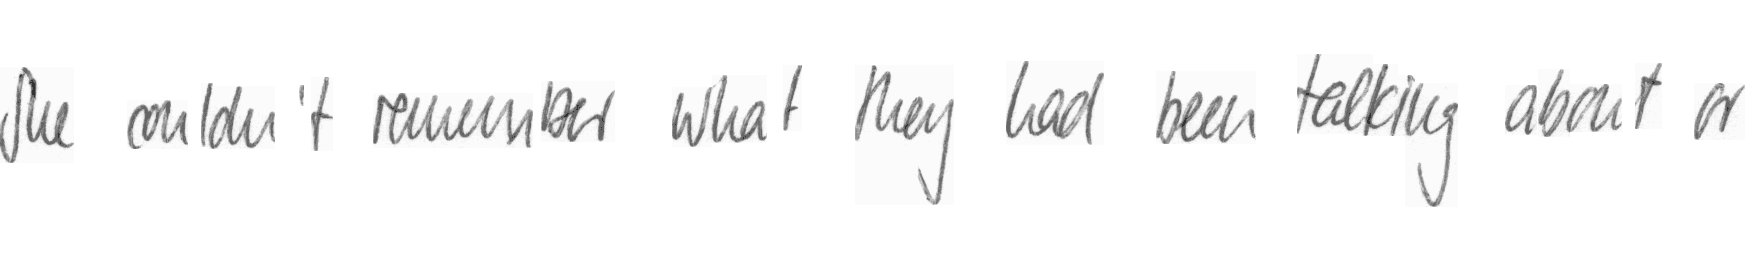 She couldn't remember what they had been talking about or